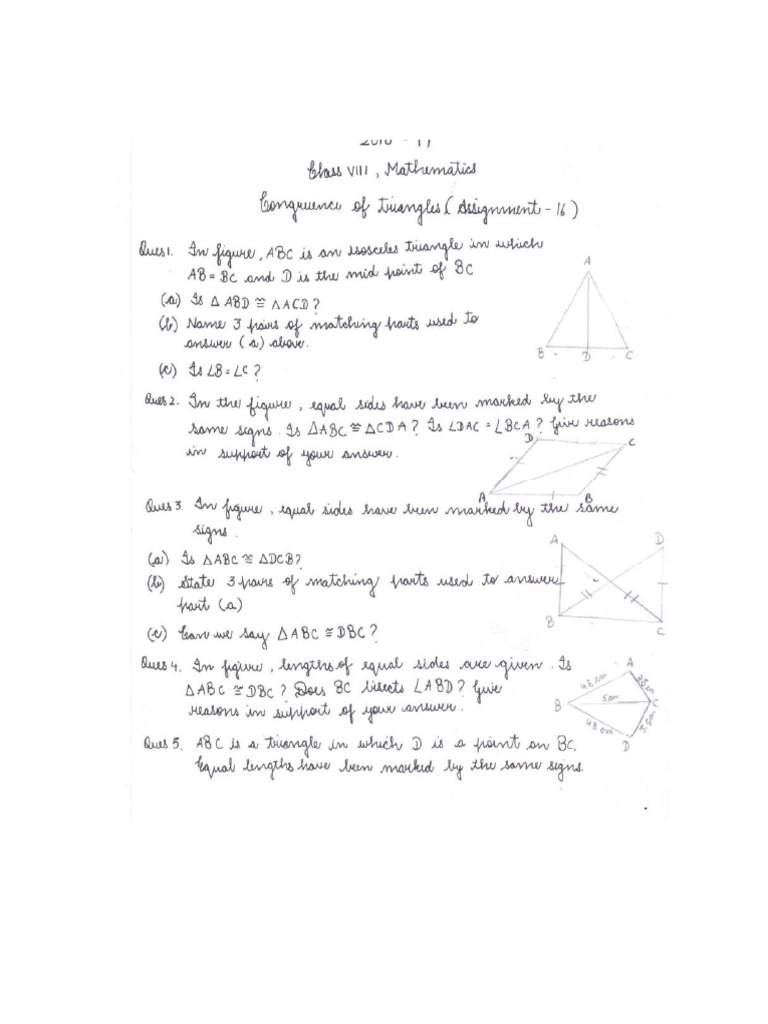 Class VIII, Mathematics
Congruence of triangles (Assignment - 16)
Ques 1. In figure, ABC is an isosceles triangle in which
AB = BC and D is the mid point of BC
(a) Is △ ABD ≅ △ACD?
(b) Name 3 pairs of matching parts used to
answer (a) above.
(c) Is ∠B = ∠C ?
A
B
D
C
Ques 2. In the figure, equal sides have been marked by the
same signs. Is △ABC ≅ △CDA? Is ∠DAC = ∠BCA? Give reasons
in support of your answer.
D
C
A
B
Ques 3. In figure, equal sides have been marked by the same
signs.
(a) Is △ABC ≅ △DCB?
(b) State 3 pairs of matching parts used to answer
part (a)
(c) Can we say △ABC ≅ DBC?
A
D
B
C
Ques 4. In figure, lengths of equal sides are given. Is
△ABC ≅ DBC? Does BC bisects ∠ABD? Give
reasons in support of your answer.
A
B
5cm
C
D
Ques 5. ABC is a triangle in which D is a point on BC.
Equal lengths have been marked by the same signs.